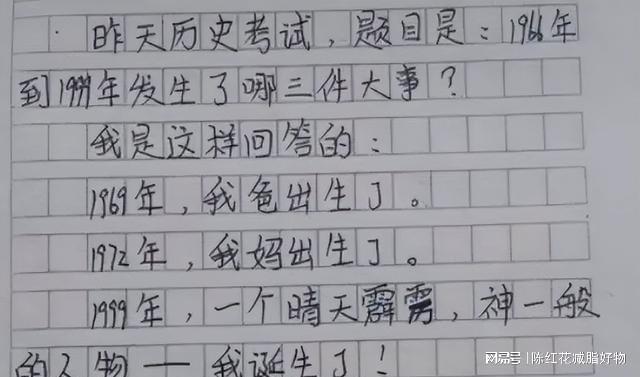 昨天历史考试，题目是：1966年
到1999年发生了哪三件大事？
我是这样回答的：
1969年，我爸出生了。
1972年，我妈出生了。
1999年，一个晴天霹雳，神一般
的人物——我诞生了！
网易号 | 陈红花减脂好物